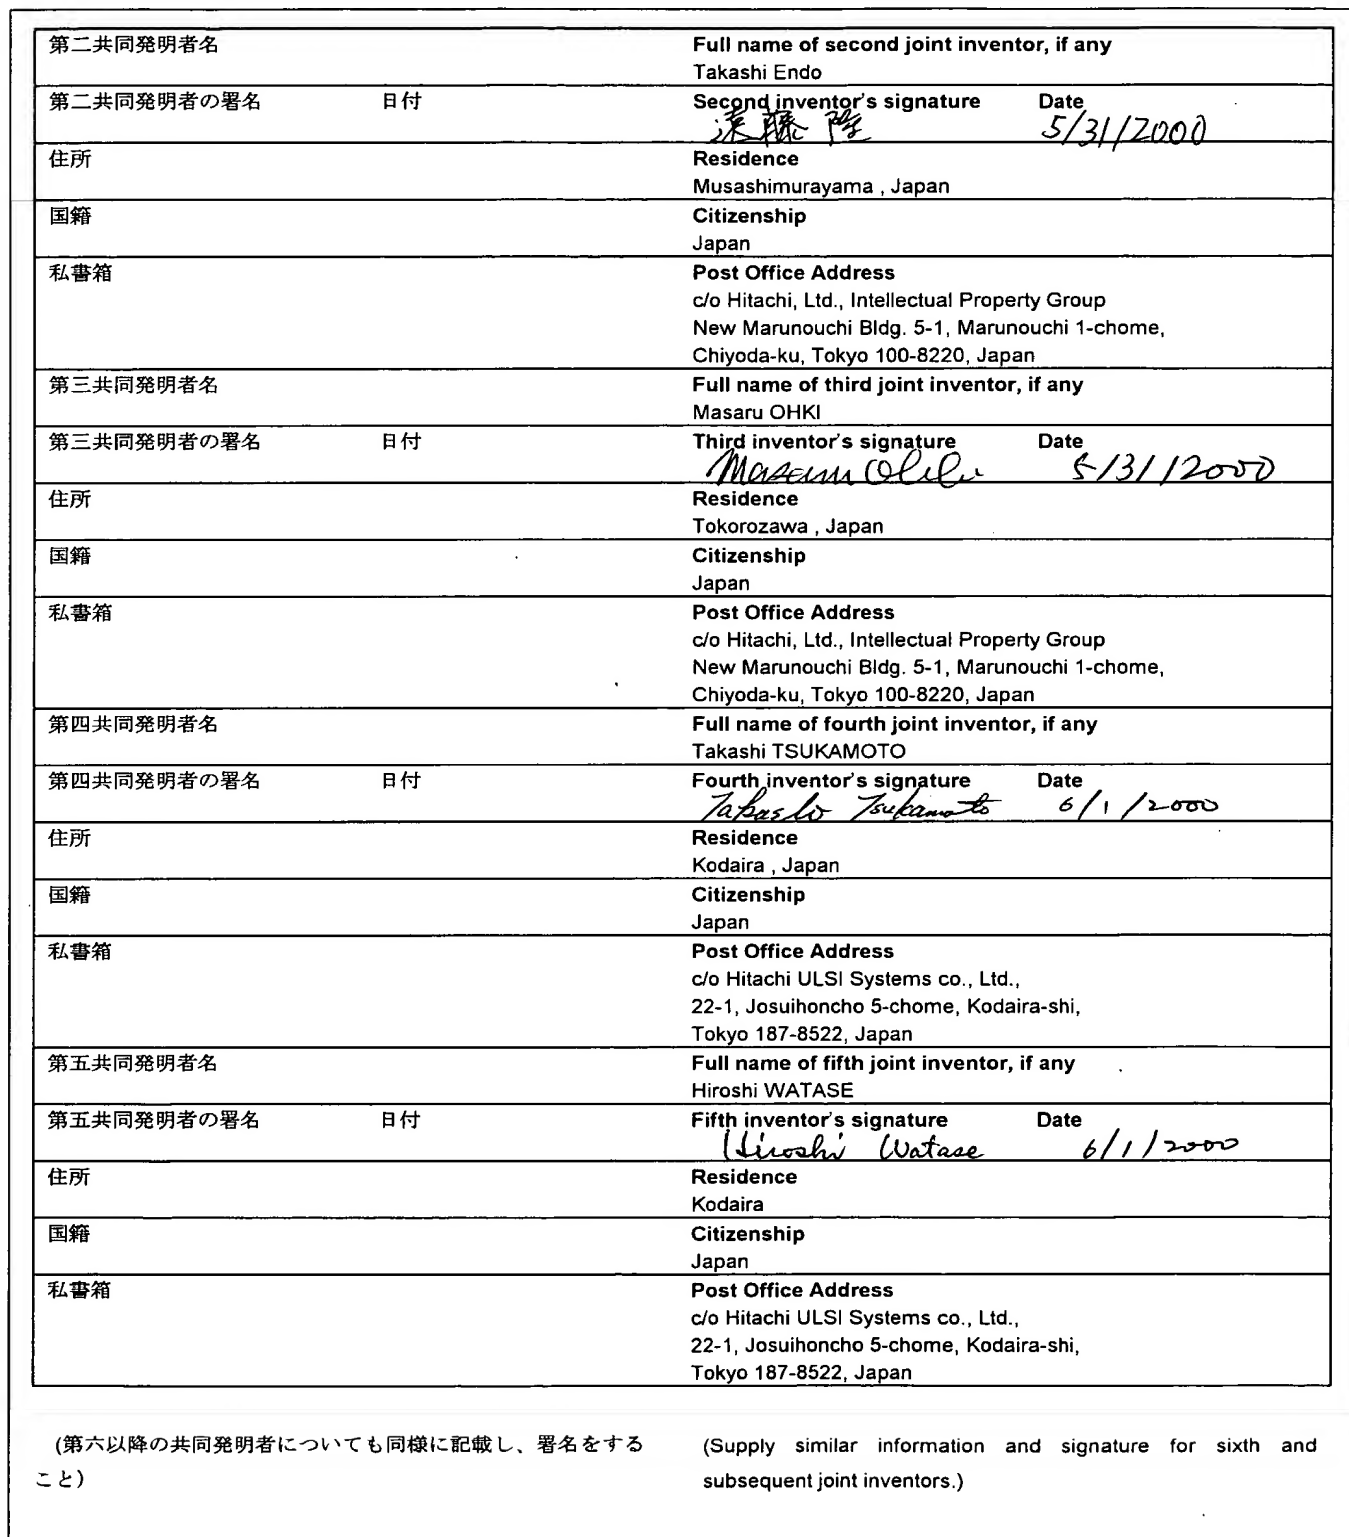 第二共同発明者名 Full name of second joint inventor, if any
Takashi Endo
第二共同発明者の署名 日付 Second inventor's signature Date
遠藤 隆 5/31/2000
住所 Residence
Musashimurayama , Japan
国籍 Citizenship
Japan
私書箱 Post Office Address
c/o Hitachi, Ltd., Intellectual Property Group
New Marunouchi Bldg. 5-1, Marunouchi 1-chome,
Chiyoda-ku, Tokyo 100-8220, Japan
第三共同発明者名 Full name of third joint inventor, if any
Masaru OHKI
第三共同発明者の署名 日付 Third inventor's signature Date
Masaru Ohki 5/31/2000
住所 Residence
Tokorozawa , Japan
国籍 Citizenship
Japan
私書箱 Post Office Address
c/o Hitachi, Ltd., Intellectual Property Group
New Marunouchi Bldg. 5-1, Marunouchi 1-chome,
Chiyoda-ku, Tokyo 100-8220, Japan
第四共同発明者名 Full name of fourth joint inventor, if any
Takashi TSUKAMOTO
第四共同発明者の署名 日付 Fourth inventor's signature Date
Takashi Tsukamoto 6/1/2000
住所 Residence
Kodaira , Japan
国籍 Citizenship
Japan
私書箱 Post Office Address
c/o Hitachi ULSI Systems co., Ltd.,
22-1, Josuihoncho 5-chome, Kodaira-shi,
Tokyo 187-8522, Japan
第五共同発明者名 Full name of fifth joint inventor, if any
Hiroshi WATASE
第五共同発明者の署名 日付 Fifth inventor's signature Date
Hiroshi Watase 6/1/2000
住所 Residence
Kodaira
国籍 Citizenship
Japan
私書箱 Post Office Address
c/o Hitachi ULSI Systems co., Ltd.,
22-1, Josuihoncho 5-chome, Kodaira-shi,
Tokyo 187-8522, Japan
(第六以降の共同発明者についても同様に記載し、署名をする
こと)
(Supply similar information and signature for sixth and
subsequent joint inventors.)